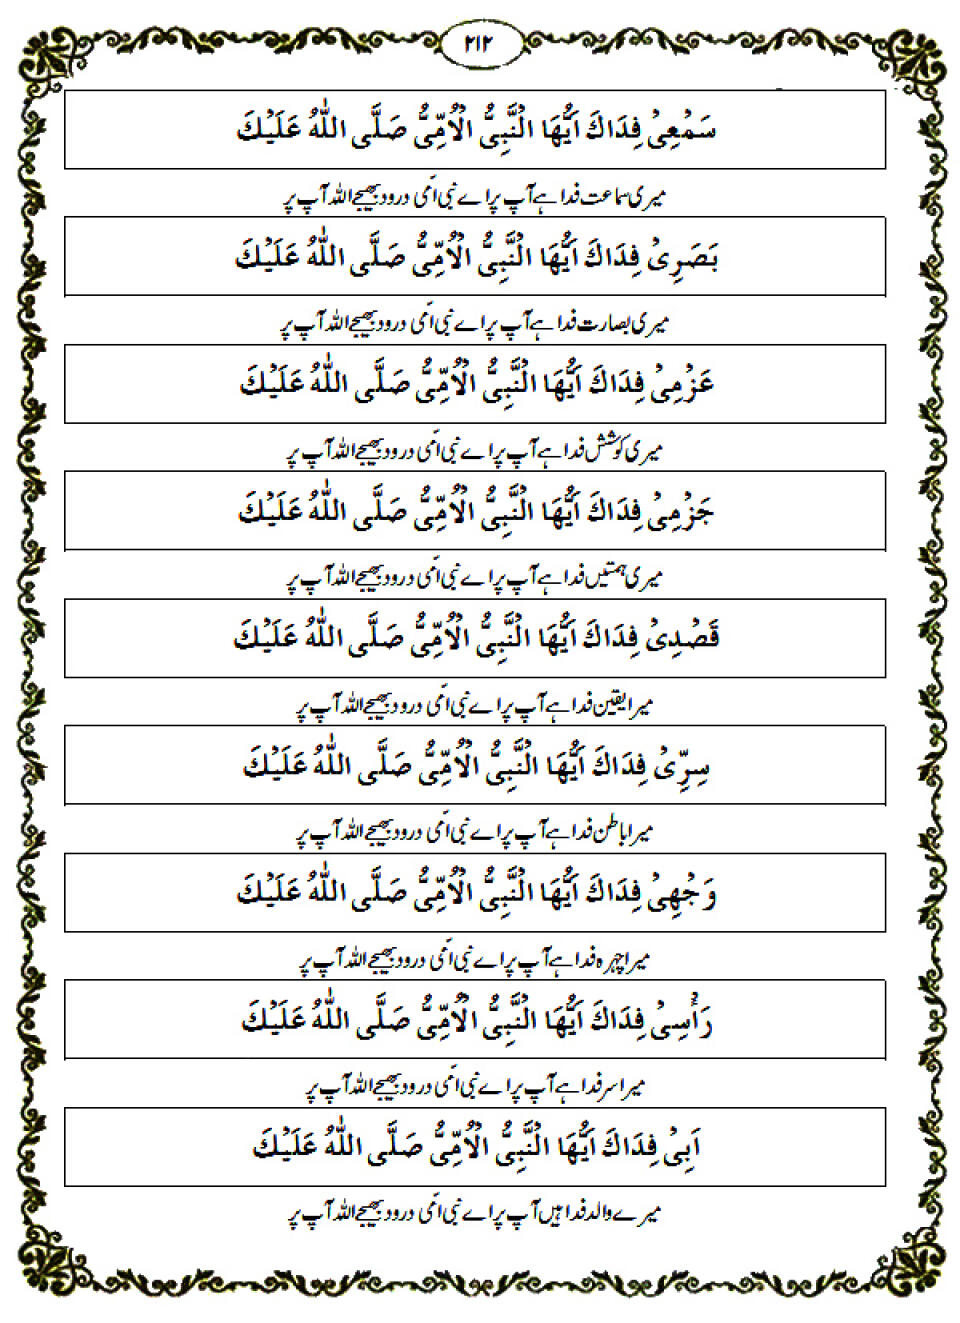 ۲۱۲
سَمْعِیْ فِدَاكَ اَیُّهَا الْنَّبِیُّ الْاُمِّیُّ صَلَّی اللّٰهُ عَلَیْكَ
میری سماعت فدا ہے آپ پر اے نبی اُمی درود بھیجے اللہ آپ پر
بَصَرِیْ فِدَاكَ اَیُّهَا الْنَّبِیُّ الْاُمِّیُّ صَلَّی اللّٰهُ عَلَیْكَ
میری بصارت فدا ہے آپ پر اے نبی اُمی درود بھیجے اللہ آپ پر
عَزْمِیْ فِدَاكَ اَیُّهَا الْنَّبِیُّ الْاُمِّیُّ صَلَّی اللّٰهُ عَلَیْكَ
میری کوشش فدا ہے آپ پر اے نبی اُمی درود بھیجے اللہ آپ پر
جَزْمِیْ فِدَاكَ اَیُّهَا الْنَّبِیُّ الْاُمِّیُّ صَلَّی اللّٰهُ عَلَیْكَ
میری ہمتیں فدا ہے آپ پر اے نبی اُمی درود بھیجے اللہ آپ پر
قَصْدِیْ فِدَاكَ اَیُّهَا الْنَّبِیُّ الْاُمِّیُّ صَلَّی اللّٰهُ عَلَیْكَ
میرا یقین فدا ہے آپ پر اے نبی اُمی درود بھیجے اللہ آپ پر
سِرِّیْ فِدَاكَ اَیُّهَا الْنَّبِیُّ الْاُمِّیُّ صَلَّی اللّٰهُ عَلَیْكَ
میرا باطن فدا ہے آپ پر اے نبی اُمی درود بھیجے اللہ آپ پر
وَجْهِیْ فِدَاكَ اَیُّهَا الْنَّبِیُّ الْاُمِّیُّ صَلَّی اللّٰهُ عَلَیْكَ
میرا چہرہ فدا ہے آپ پر اے نبی اُمی درود بھیجے اللہ آپ پر
رَأْسِیْ فِدَاكَ اَیُّهَا الْنَّبِیُّ الْاُمِّیُّ صَلَّی اللّٰهُ عَلَیْكَ
میرا سر فدا ہے آپ پر اے نبی اُمی درود بھیجے اللہ آپ پر
اَبِیْ فِدَاكَ اَیُّهَا الْنَّبِیُّ الْاُمِّیُّ صَلَّی اللّٰهُ عَلَیْكَ
میرے والد فدا ہیں آپ پر اے نبی اُمی درود بھیجے اللہ آپ پر